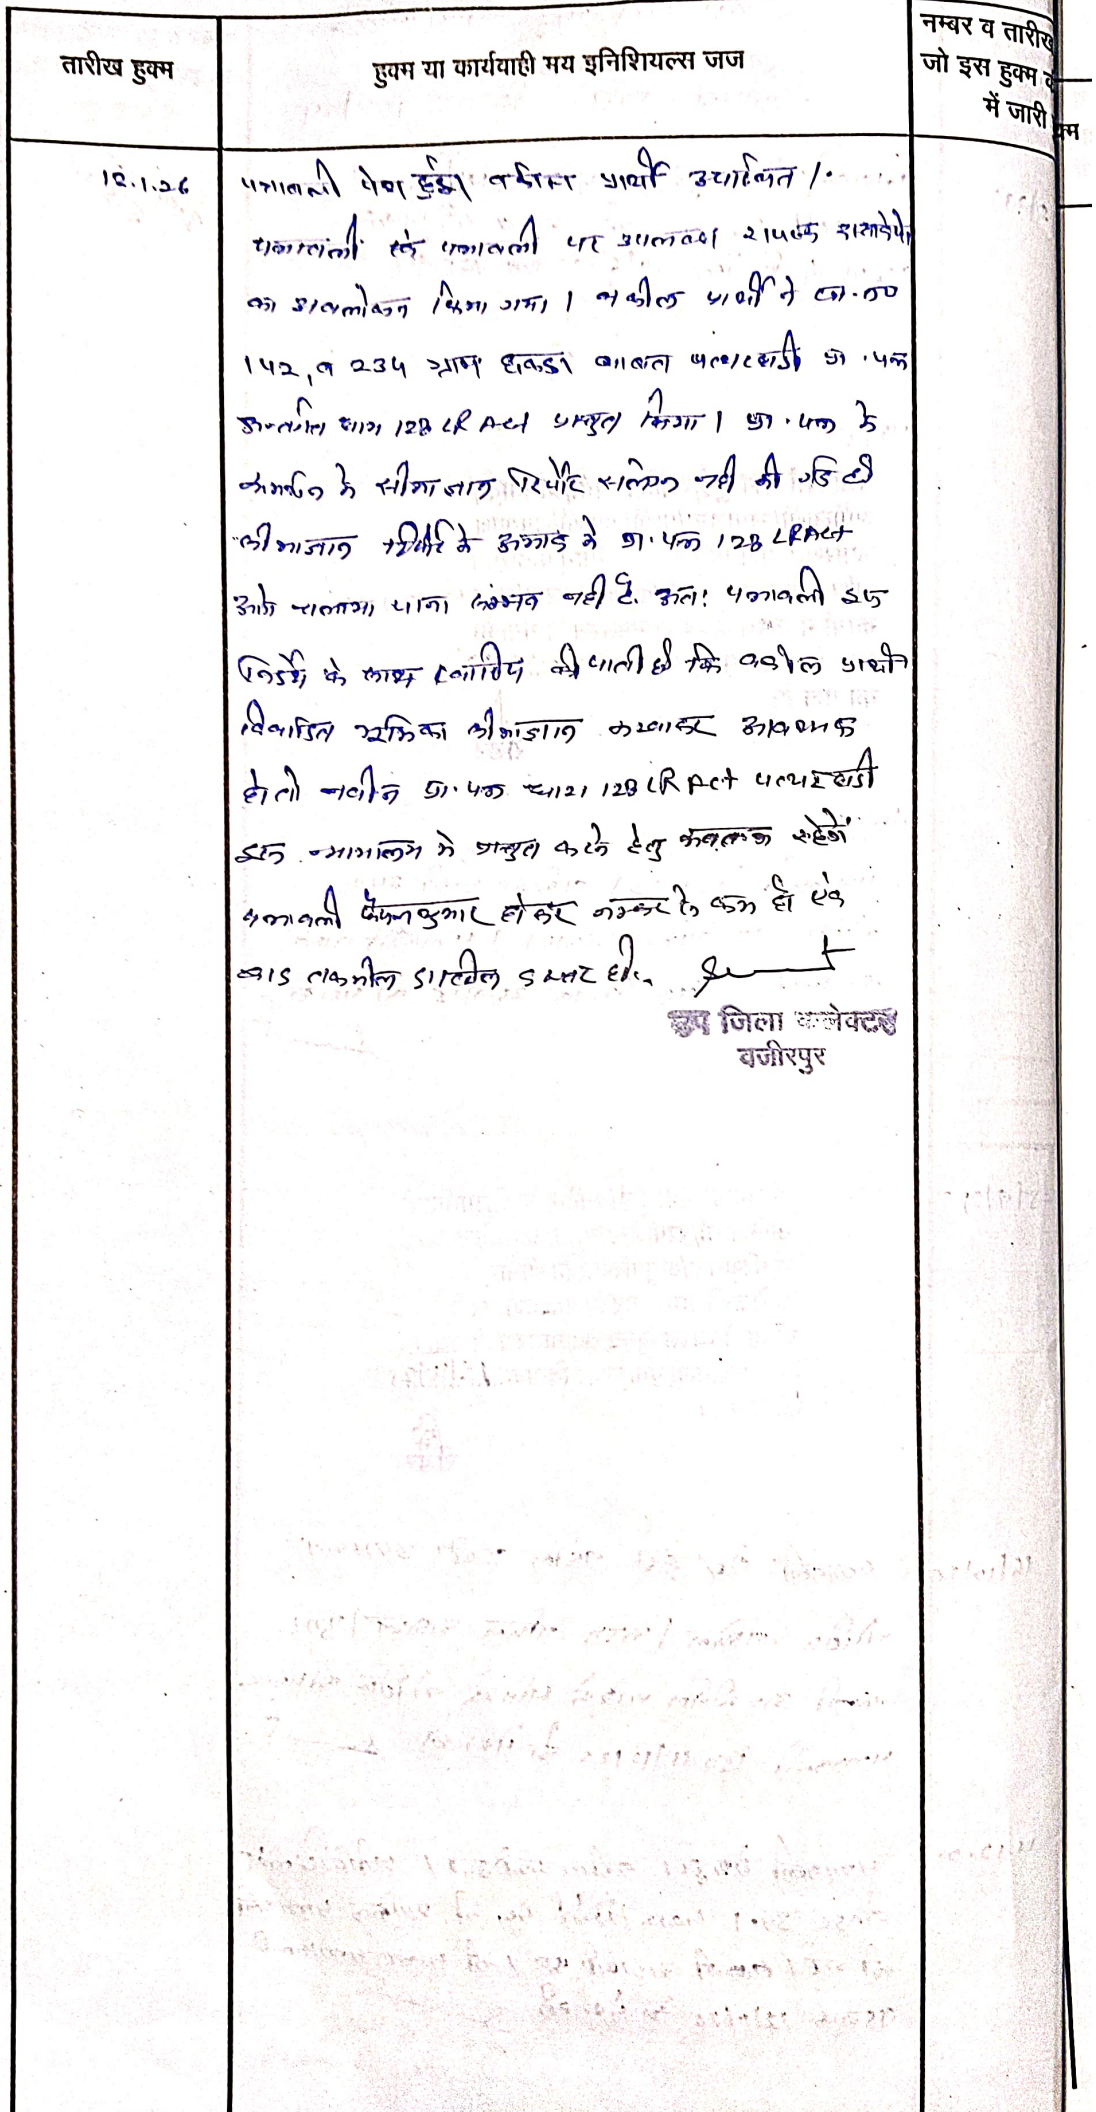 तारीख हुक्म
हुक्म या कार्यवाही मय इनिशियल्स जज
नम्बर व तारीख
जो इस हुक्म
में जारी
क्म
पत्रावली पेश हुई। वकील प्रार्थी उपस्थित।
पत्रावली पर उपलब्ध
का अवलोकन किया गया। वकील प्रार्थी ने ख.नं०
142, व 234 ग्राम बाबत पत्थरगढी प्रा.पत्र
अन्तर्गत धारा 128 LR Act प्रस्तुत किया। प्रा.पत्र के
समर्थन में सीमाज्ञान रिपोर्ट संलग्न नहीं की गई है
सीमाज्ञान रिपोर्ट के अभाव में प्रा.पत्र 128 LR Act
आगे चलाया जाना संभव नहीं है. अतः पत्रावली इस
निर्देश के साथ खारिज की जाती है कि वकील प्रार्थी
विवादित भूमि का सीमाज्ञान करवाकर आवश्यक
हो तो नवीन प्रा.पत्र धारा 128 LR Act पत्थरगढी
इस न्यायालय में प्रस्तुत करने हेतु स्वतन्त्र रहेगें
पत्रावली फैसल शुमार होकर नम्बर से कम हो एवं
बाद तकमील दाखिल दफ्तर हो.
उप जिला कलेक्टर
वजीरपुर